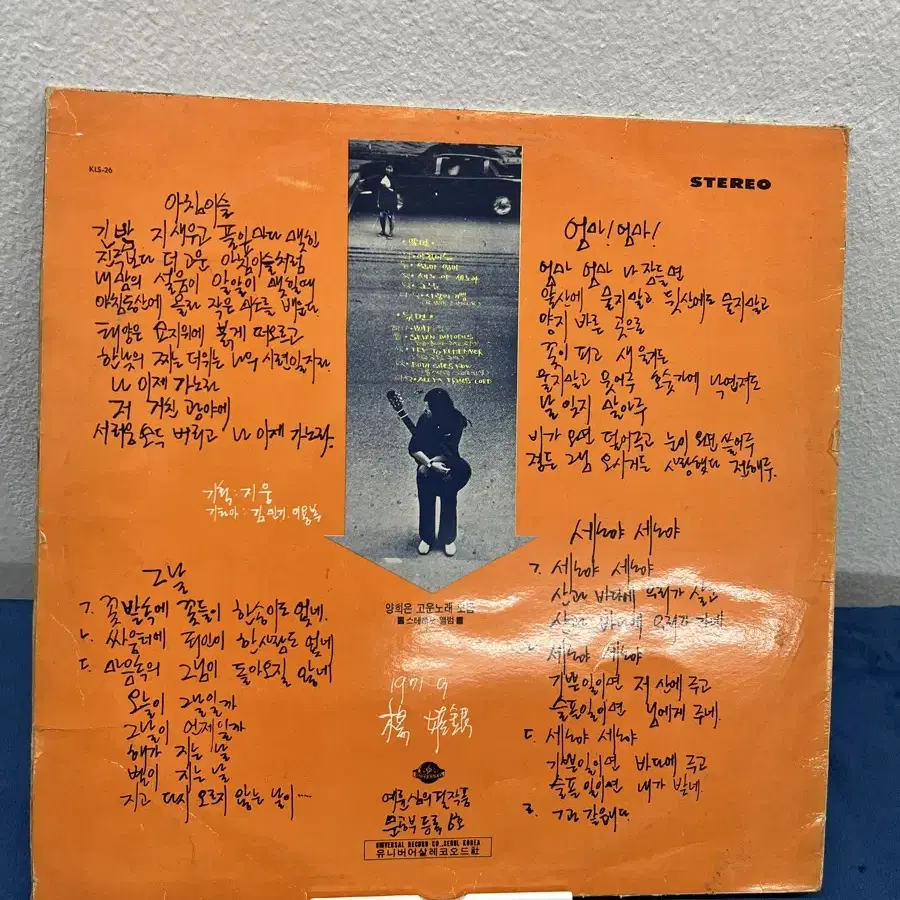 KLS-26
STEREO
아침이슬
긴밤 지새우고 풀잎마다 맺힌
진주보다 더 고운 아침이슬처럼
내 맘의 설움이 알알이 맺힐때
아침동산에 올라 작은 미소를 배운다
태양은 묘지위에 붉게 떠오르고
한낮의 찌는 더위는 나의 시련일지라
나 이제 가노라
저 거친 광야에
서러움 모두 버리고 나 이제 가노라.
기획: 지웅
기타아: 김민기. 이용복
그날
ㄱ. 꽃밭속에 꽃들이 한송이도 없네
ㄴ. 싸움터에 죄인이 한사람도 없네
ㄷ. 마음속의 그님이 돌아오질 않네
오늘이 그날일까
그날이 언제일까
해가 지는 날
별이 지는 날
지고 다시 오르지 않는 날이....
SEVEN DAFFODILS
TRY TO REMEMBER
BOTH SIDES NOW
양희은 고운노래 모음
■스테레오 앨범■
1971. 9
楊 姬銀
예륜심의필작품
문공부 등록 6호
UNIVERSAL RECORD CO.,SEOUL KOREA
유니버어살레코오드社
엄마! 엄마!
엄마 엄마 나 잠들면
앞산에 묻지말고 뒷산에도 묻지말고
양지 바른 곳으로
꽃이 피고 새 울거든
울지말고 웃어주 호숫가에 낙엽져도
날 잊지 말아주
비가 오면 덜어주고 눈이 오면 쓸어주
정든 그님 오시거든 사랑했다 전해주.
세노야 세노야
ㄱ. 세노야 세노야
산과 바다에 우리가 살고
산과 바다에 우리가 가네
ㄴ. 세노야 세노야
기쁜일이면 저 산에 주고
슬픈일이면 님에게 주네.
ㄷ. 세노야 세노야
기쁜일이면 바다에 주고
슬픈일이면 내가 받네.
ㄹ. ㄱ과 같읍니다